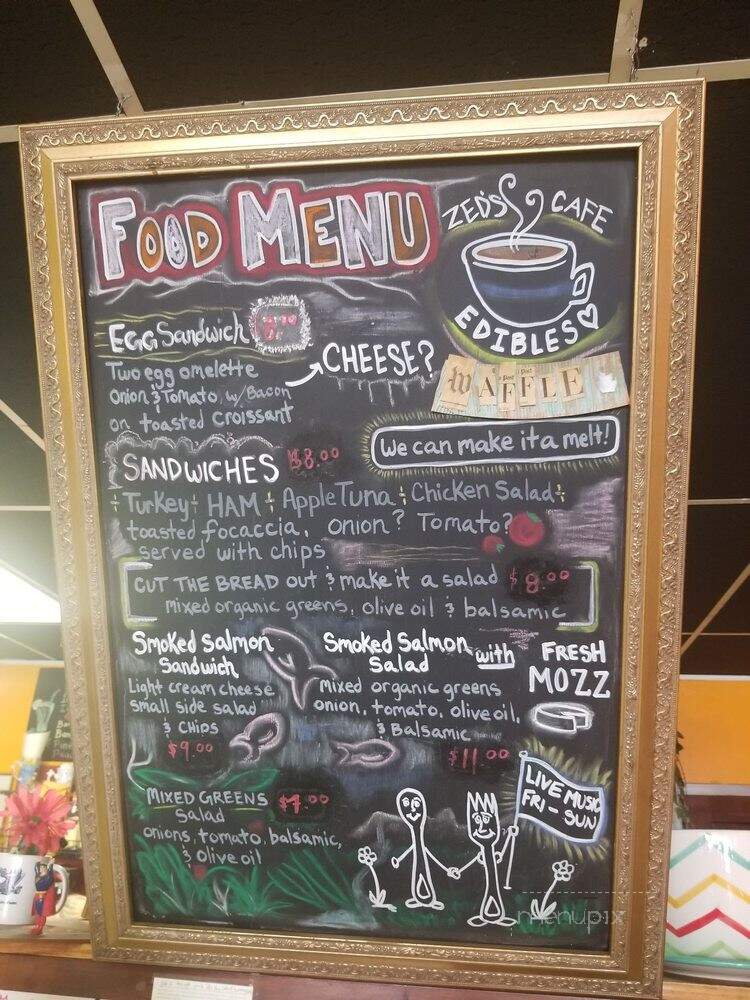 FOOD MENU
ZED'S CAFE
EDIBLES
Egg Sandwich
CHEESE?
WAFFLE
Two egg omelette
onion & Tomato, w/ Bacon
on toasted croissant
We can make it a melt!
SANDWICHES $8.00
Turkey HAM Apple Tuna Chicken Salad
toasted focaccia, onion? Tomato?
served with chips
CUT THE BREAD out & make it a salad $8.00
mixed organic greens, olive oil & balsamic
Smoked Salmon
Sandwich
Light cream cheese
small side salad
& CHIPS
$9.00
Smoked Salmon with
Salad
FRESH
MOZZ
mixed organic greens
onion, tomato, olive oil,
& Balsamic
$11.00
MIXED GREENS
Salad
onions, tomato, balsamic,
& olive oil
LIVE MUSIC
FRI - SUN
menupix